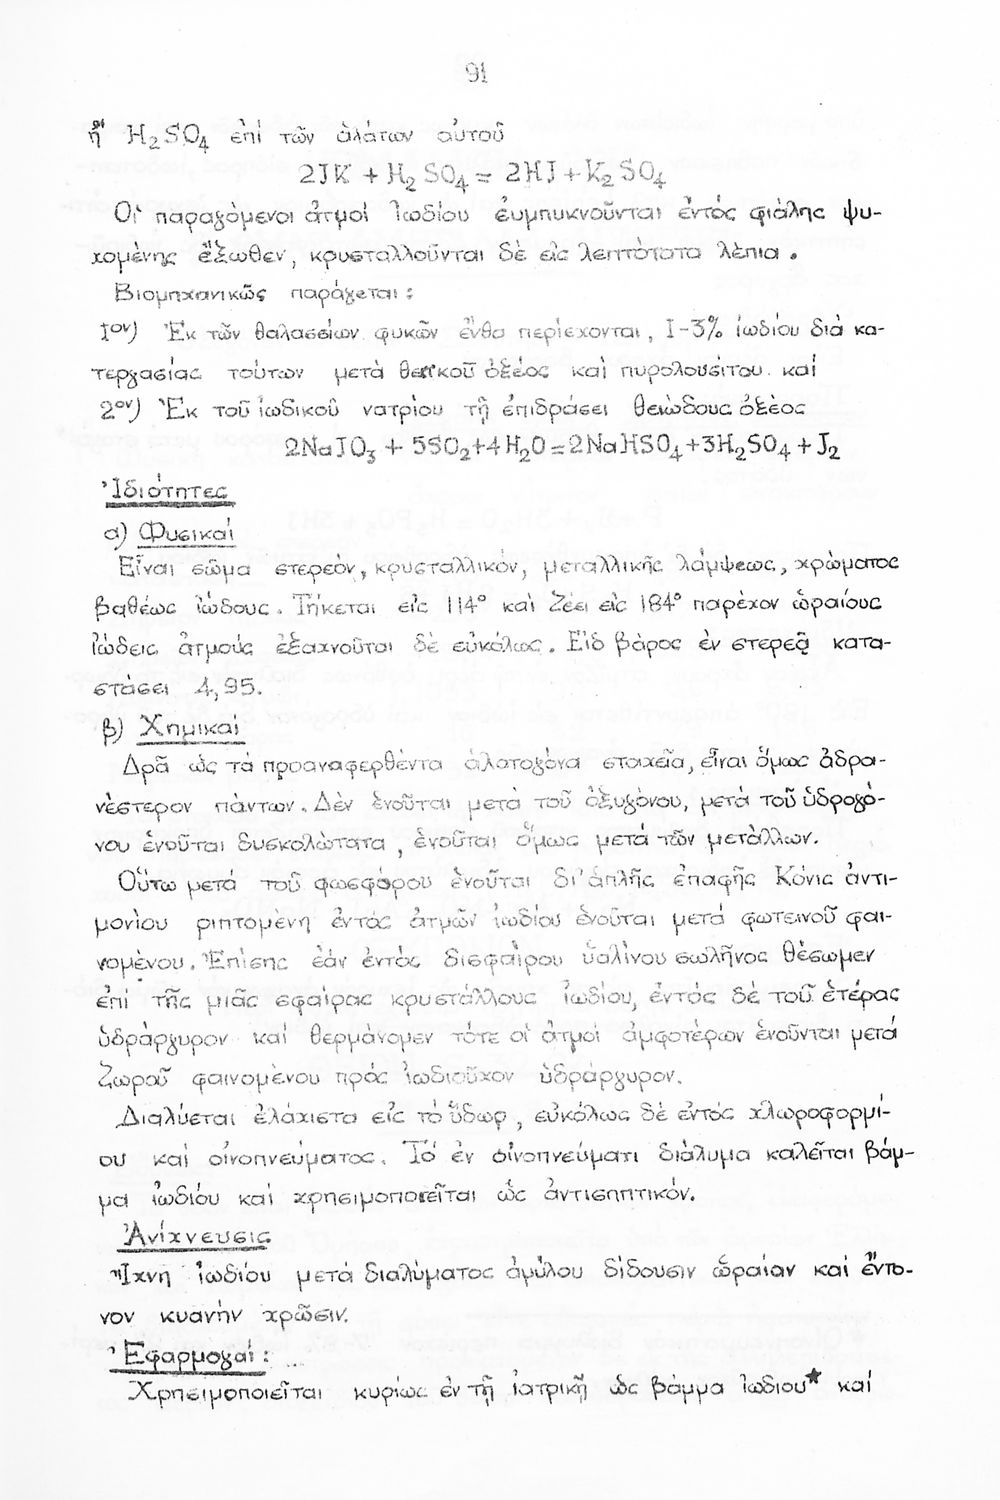 91
ἤ H₂SO₄ ἐπί τῶν ἁλάτων αὐτοῦ
2JK + H₂SO₄ = 2HJ + K₂SO₄
Οἱ παραγόμενοι ἀτμοί Ἰωδίου συμπυκνοῦνται ἐντός φιάλης ψυ-
χομένης ἔξωθεν, κρυσταλλοῦνται δέ εἰς λεπτότατα λέπια.
Βιομηχανικῶς παράγεται:
1ον) Ἐκ τῶν θαλασσίων φυκῶν ἔνθα περιέχονται, 1-3% ἰωδίου διά κα-
τεργασίας τούτων μετά θειϊκοῦ ὀξέος καί πυρολουσίτου καί
2ον) Ἐκ τοῦ ἰωδικοῦ νατρίου τῇ ἐπιδράσει θειώδους ὀξέος
2NaJO₃ + 5SO₂+4H₂O=2NaHSO₄+3H₂SO₄+J₂
Ἰδιότητες
α) Φυσικαί
Εἶναι σῶμα στερεόν, κρυσταλλικόν, μεταλλικῆς λάμψεως, χρώματος
βαθέως ἰώδους. Τήκεται εἰς 114° καί ζέει εἰς 184° παρέχον ὡραίους
ἰώδεις ἀτμούς ἐξαχνοῦται δέ εὐκόλως. Εἰδ βάρος ἐν στερεᾷ κατα-
στάσει 4,95.
β) Χημικαί
Δρᾶ ὡς τά προαναφερθέντα ἁλατογόνα στοιχεῖα, εἶναι ὅμως ἀδρα-
νέστερον πάντων. Δέν ἑνοῦται μετά τοῦ ὀξυγόνου, μετά τοῦ ὑδρογό-
νου ἑνοῦται δυσκολώτατα, ἑνοῦται ὅμως μετά τῶν μετάλλων.
Οὕτω μετά τοῦ φωσφόρου ἑνοῦται δι' ἁπλῆς ἐπαφῆς Κόνις ἀντι-
μονίου ριπτομένη ἐντός ἀτμῶν ἰωδίου ἑνοῦται μετά φωτεινοῦ φαι-
νομένου. Ἐπίσης ἐάν ἐντός δισφαίρου ὑαλίνου σωλῆνος θέσωμεν
ἐπί τῆς μιᾶς σφαίρας κρυστάλλους ἰωδίου, ἐντός δέ τοῦ ἑτέρας
ὑδράργυρον καί θερμάνομεν τότε οἱ ἀτμοί ἀμφοτέρων ἑνοῦνται μετά
ζωροῦ φαινομένου πρός ἰωδιοῦχον ὑδράργυρον.
Διαλύεται ἐλάχιστα εἰς τό ὕδωρ, εὐκόλως δέ ἐντός χλωροφορμί-
ου καί οἰνοπνεύματος. Τό ἐν οἰνοπνεύματι διάλυμα καλεῖται βάμ-
μα ἰωδίου καί χρησιμοποιεῖται ὡς ἀντισηπτικόν.
Ἀνίχνευσις
Ἴχνη ἰωδίου μετά διαλύματος ἀμύλου δίδουσιν ὡραίαν καί ἔντο-
νον κυανήν χρῶσιν.
Ἐφαρμογαί:
Χρησιμοποιεῖται κυρίως ἐν τῇ ἰατρικῇ ὡς βάμμα ἰωδιου* καί